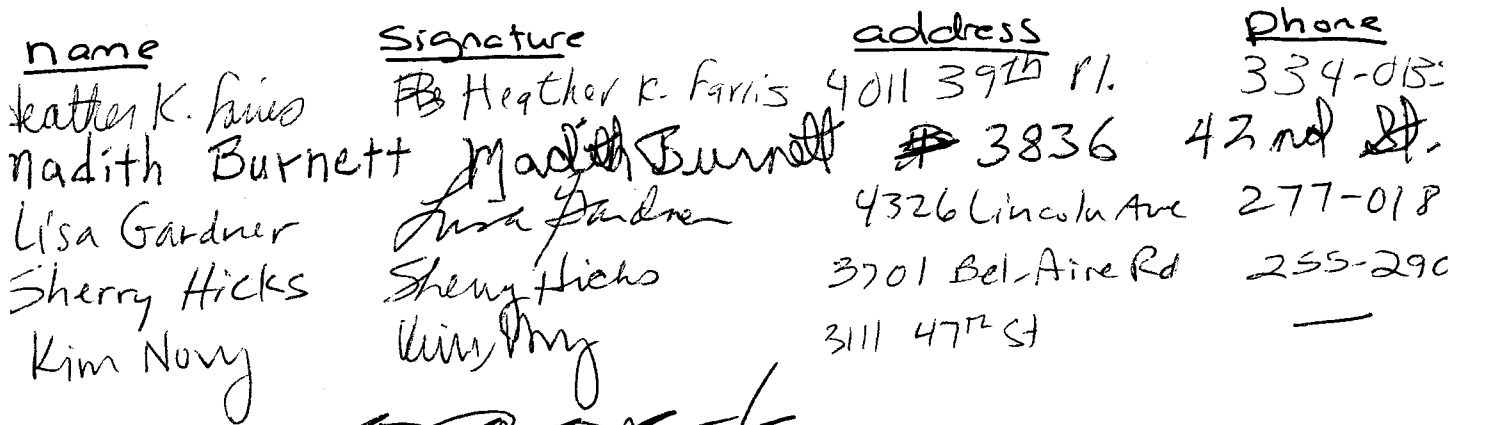 name Signature address phone
Heather K. Farris Heather K. Farris 4011 39th Pl. 334-013
Madith Burnett Madith Burnett 3836 42nd St.
Lisa Gardner Lisa Gardner 4326 Lincoln Ave 277-018
Sherry Hicks Sherry Hicks 3701 Bel-Aire Rd 255-290
Kim Novy Kim Novy 3111 47th St —